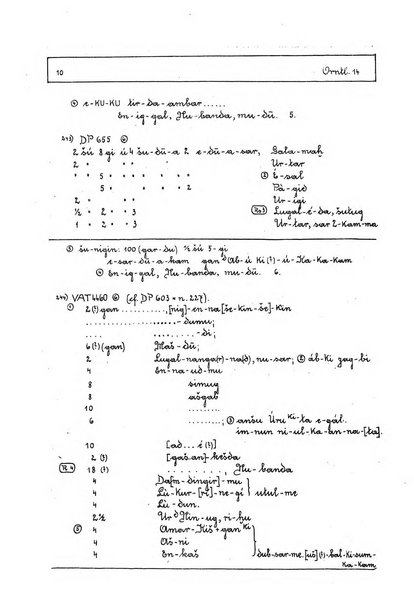 10 Orntl. 14
④ e-KU-KU tir-da-ambar......
En-ig-gal, Nu-banda, mu-dū. 5.
243) DP 655 ⓒ
2 šú 8 gi ú 4 šu-dū-a 2 e-dū-a-sar, Gala-maḫ
2 " " " Ur-tar
" " 5 " " " " ② É-sal
5 " " " 2 Pà-gid
2 " " Ur-igi
½ " 2 " 3 Rs 3 Lugal-é-da, šutug
1 " 2 " 3 Ur-tar, sar 2-kam-ma
③ šu-nigin: 100 (gar-du) ½ šú 5-gi
e-sar-dū-a-kam gan d(Ab-ú Ki (?)-ú-Ka-Ka-Kam
④ En-ig-gal, Nu-banda, mu-dū. 6.
244) VAT 4460 ⓒ (cf. DP 603 = n. 227).
① 2 (?) gan .........., [nig]-en-na [še-kin-še]-Kin
....................-dumu;
....................-di;
6 (?) (gan) Maš-dū;
2 Lugal-nanga(r)-na(d), nu-sar; ② áb-Ki zag-bi
4 En-na-ud-mu
8 simug
8 ašgab
10 ........
6 ........; ③ anšu Úru Ki-ta e-gál.
im-nun ni-ul-Ka-an-na-[ta].
10 [ad...é (?)]
2 (?) [gaš.an]-kešda
R 4 18 (?) ........, Nu-banda
4 Da[m-dingir]-mu
4 Lú-Kur-[ri]-ne-gi } utul-me
4 Lú-dun.
2½ Ur d Nin-ug, ri-ḫu
⑤ 4 Amar-Kiš+gan Ki
4 Aš-ni
4 En-kaš } dub-sar-me. [uš] (?)-bal-Ki-sum-
Ka-Kam